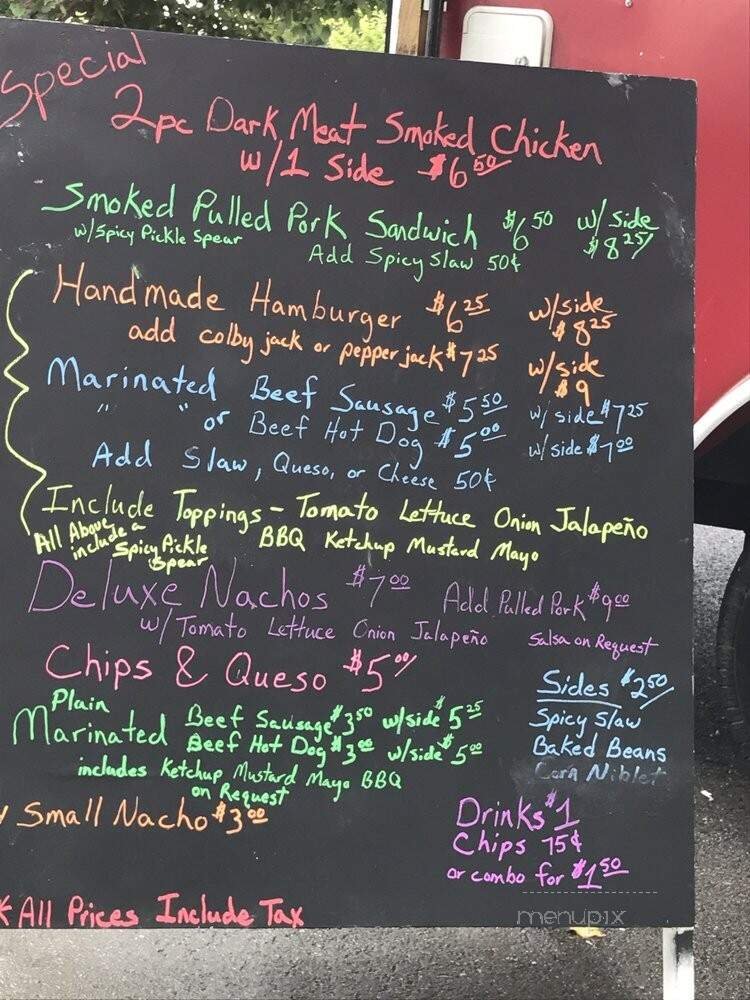 Special
2pc Dark Meat Smoked Chicken
w/1 Side $6.50
Smoked Pulled Pork Sandwich $6.50 w/ Side
w/Spicy Pickle Spear Add Spicy Slaw 50¢ $8.25
Handmade Hamburger $6.25 w/side $8.25
add colby jack or pepper jack $7.25 w/side $9
Marinated Beef Sausage $5.50 w/ side $7.25
" " or Beef Hot Dog $5.00 w/ side $7.00
Add Slaw, Queso, or Cheese 50¢
Include Toppings - Tomato Lettuce Onion Jalapeño
BBQ Ketchup Mustard Mayo
All Above
include a
Spicy Pickle
Spear
Deluxe Nachos $7.00 Add Pulled Pork $9.00
w/Tomato Lettuce Onion Jalapeño Salsa on Request
Chips & Queso $5.00
Plain
Marinated Beef Sausage $3.50 w/side $5.25
Beef Hot Dog $3.00 w/side $5.00
includes Ketchup Mustard Mayo BBQ
on Request
Small Nacho $3.00
Sides $2.50
Spicy Slaw
Baked Beans
Corn Niblet
Drinks $1
Chips 75¢
or combo for $1.50
*All Prices Include Tax
menupix